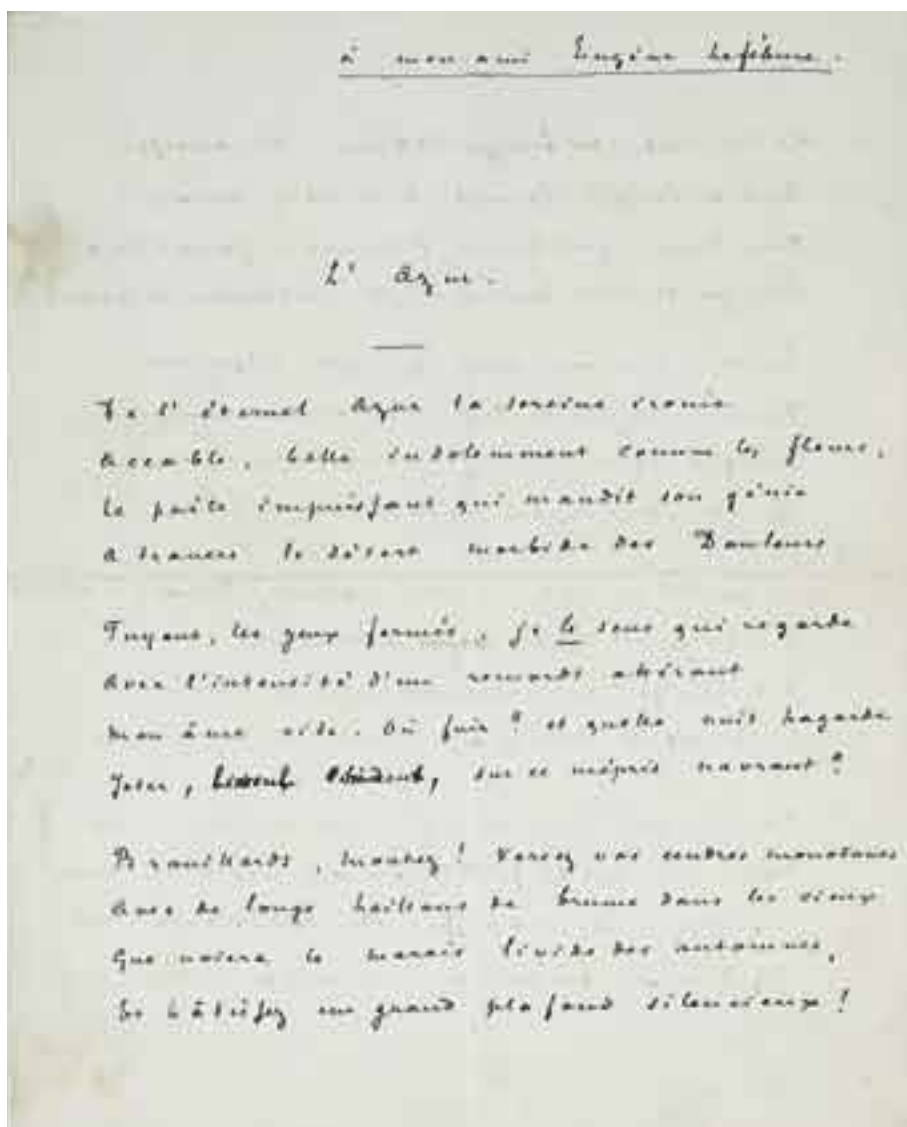 à mon ami Eugène Lefébure.
L'Azur.
De l'éternel Azur la sereine ironie
Accable, belle indolemment comme les fleurs,
Le poëte impuissant qui maudit son génie
A travers le désert morbide des Douleurs
Fuyant, les yeux fermés, je le sens qui regarde
Avec l'intensité d'un remords atérant
Mon âme vide. Où fuir ? et quelle nuit hagarde
Jeter, sur ce mépris navrant ?
Brouillards, montez ! Versez vos cendres monotones
Avec de longs haillons de brume dans les cieux
Que noiera le marais livide des automnes,
Et bâtissez un grand plafond silencieux !